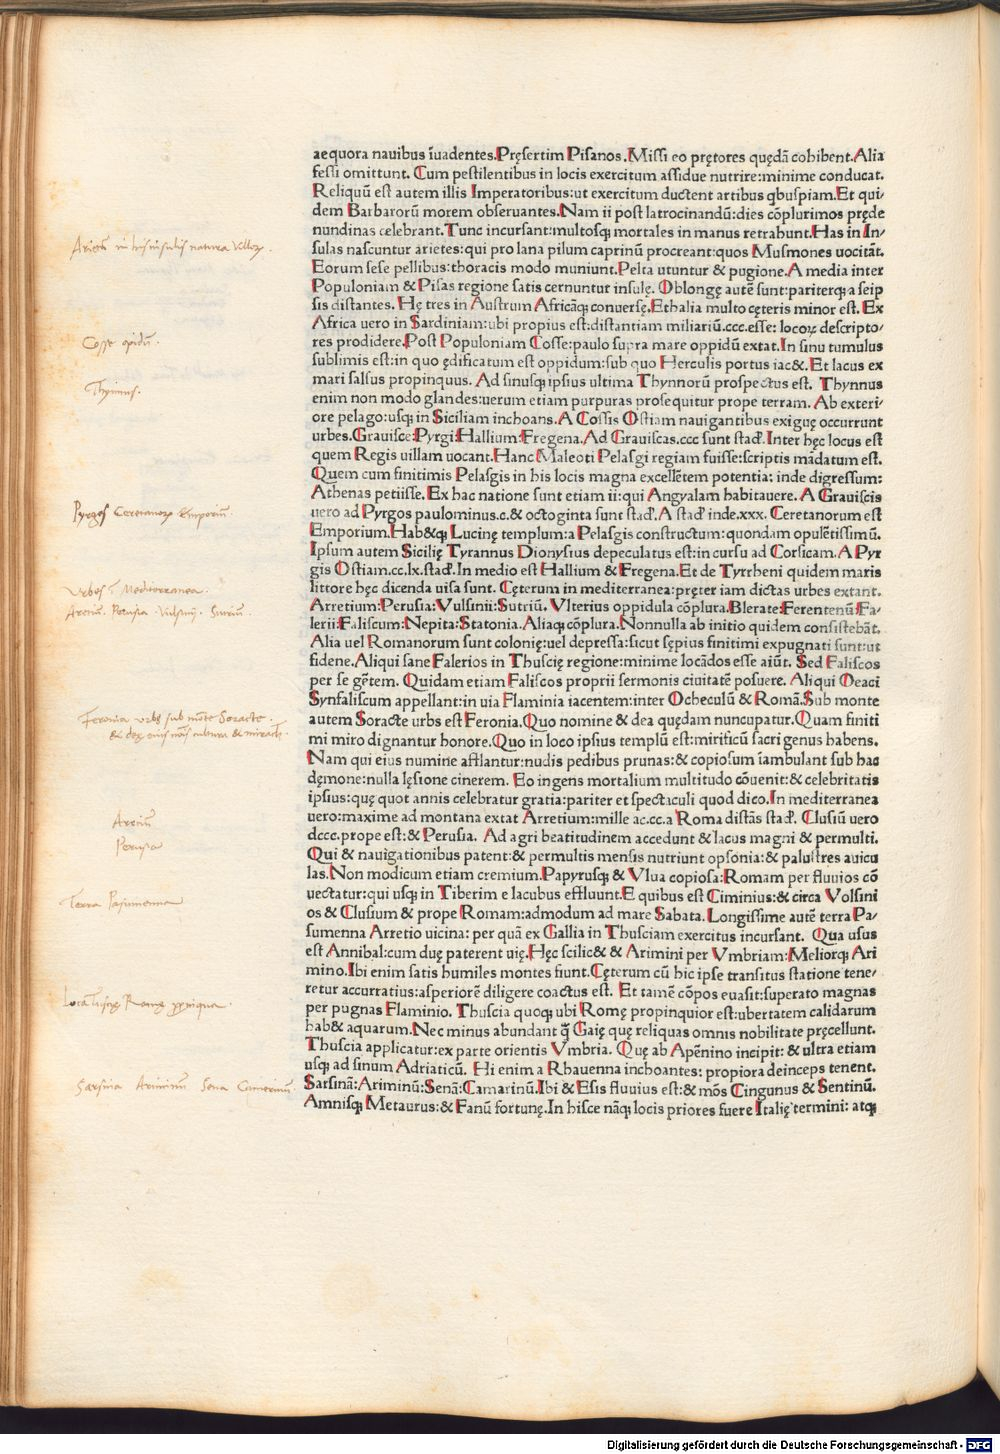 aequora nauibus ĩuadentes.Pręsertim Pisanos.Missi eo prętores quędã cohibent.Alia
fessi omittunt. Cum pestilentibus in locis exercitum assidue nutrire:minime conducat.
Reliquũ est autem illis Imperatoribus:ut exercitum ductent artibus qbuspiam.Et qui/
dem Barbarorũ morem obseruantes.Nam ii post latrocinandũ:dies cõplurimos pręde
nundinas celebrant.Tunc incursant:multosqꝫ mortales in manus retrabunt.Has in In/
sulas nascuntur arietes:qui pro lana pilum caprinũ procreant:quos Musmones uocitãt.
Eorum sese pellibus:thoracis modo muniunt.Pelta utuntur & pugione.A media inter
Populoniam & Pisas regione satis cernuntur insulę. Oblongę autẽ sunt:pariterqꝫ a seip
sis distantes. Hę tres in Austrum Africãqꝫ conuersę.Ethalia multo cęteris minor est. Ex
Africa uero in Sardiniam:ubi propius est:distantiam miliariũ.ccc.esse:locoꝝ descripto/
res prodidere.Post Populoniam Cosse:paulo supra mare oppidũ extat.In sinu tumulus
sublimis est:in quo ędificatum est oppidum:sub quo Herculis portus iac&.Et lacus ex
mari salsus propinquus. Ad sinusqꝫ ipsius ultima Thynnorũ prospectus est. Thynnus
enim non modo glandes:uerum etiam purpuras prosequitur prope terram. Ab exteri/
ore pelago:usqꝫ in Siciliam inchoans.A Cossis Ostiam nauigantibus exiguę occurrunt
urbes.Grauisce:Pyrgi:Hallium:Fregena.Ad Grauiscas.ccc sunt stad'.Inter hęc locus est
quem Regis uillam uocant.Hanc Maleoti Pelasgi regiam fuisse:scriptis mãdatum est.
Quem cum finitimis Pelasgis in his locis magna excellẽtem potentia: inde digressum:
Athenas petiisse. Ex hac natione sunt etiam ii:qui Angyalam habitauere. A Grauiscis
uero ad Pyrgos paulominus.c.& octoginta sunt stad'.A stad' inde.xxx. Ceretanorum est
Emporium.Hab&qꝫ Lucinę templum:a Pelasgis constructum:quondam opulẽtissimũ.
Ipsum autem Sicilię Tyrannus Dionysius depeculatus est:in cursu ad Corsicam.A Pyr
gis Ostiam.cc.lx.stad'.In medio est Hallium & Fregena.Et de Tyrrheni quidem maris
littore hęc dicenda uisa sunt. Cęterum in mediterranea:pręter iam dictas urbes extant.
Arretium:Perusia:Vulsinii:Sutriũ. Vlterius oppidula cõplura.Blerate:Ferentenũ:Fa/
lerii:Faliscum:Nepita:Statonia.Aliaqꝫ cõplura.Nonnulla ab initio quidem consistebãt.
Alia uel Romanorum sunt colonię:uel depressa:sicut sępius finitimi expugnati sunt:ut
fidene.Aliqui sane Falerios in Thuscię regione:minime locãdos esse aiũt. Sed Faliscos
per se gẽtem. Quidam etiam Faliscos proprii sermonis ciuitatẽ posuere. Aliqui Oeaci
Synfaliscum appellant:in uia Flaminia iacentem:inter Ocheculũ & Romã.Sub monte
autem Soracte urbs est Feronia.Quo nomine & dea quędam nuncupatur.Quam finiti
mi miro dignantur honore.Quo in loco ipsius templũ est:mirificũ sacri genus habens.
Nam qui eius numine afflantur:nudis pedibus prunas:& copiosum iambulant sub hac
dęmone:nulla lęsione cinerem. Eo ingens mortalium multitudo cõuenit:& celebritatis
ipsius:quę quot annis celebratur gratia:pariter et spectaculi quod dico.In mediterranea
uero:maxime ad montana extat Arretium:mille ac.cc.a Roma distãs stad'. Clusiũ uero
dccc.prope est:& Perusia. Ad agri beatitudinem accedunt & lacus magni & permulti.
Qui & nauigationibus patent:& permultis mensis nutriunt opsonia:& palustres auicu
las.Non modicum etiam cremium.Papyrusqꝫ & Vlua copiosa:Romam per fluuios cõ
uectatur:qui usqꝫ in Tiberim e lacubus effluunt.E quibus est Ciminius:& circa Volsini
os & Clusium & prope Romam:admodum ad mare Sabata.Longissime autẽ terra Pa/
sumenna Arretio uicina: per quã ex Gallia in Thusciam exercitus incursant. Qua usus
est Annibal:cum duę paterent uię.Hęc scilic& & Arimini per Vmbriam:Meliorqꝫ Ari
mino.Ibi enim satis humiles montes fiunt.Cęterum cũ hic ipse transitus statione tene/
retur accurratius:asperiorẽ diligere coactus est. Et tamẽ cõpos euasit:superato magnas
per pugnas Flaminio. Thuscia quoqꝫ ubi Romę propinquior est:ubertatem calidarum
hab& aquarum.Nec minus abundant q̃ Gaię quę reliquas omnis nobilitate pręcellunt.
Thuscia applicatur:ex parte orientis Vmbria. Quę ab Apẽnino incipit: & ultra etiam
usqꝫ ad sinum Adriaticũ. Hi enim a Rhauenna inchoantes: propiora deinceps tenent.
Sarsinã:Ariminũ:Senã:Camarinũ.Ibi & Esis fluuius est:& mõs Cingunus & Sentinũ.
Amnisqꝫ Metaurus:& Fanũ fortunę.In hisce nãqꝫ locis priores fuere Italię termini: atqꝫ
Arietũ in his insulis natura
Cosse opidũ.
Thynnus.
Pyrgos Ceretanoꝝ Emporiũ.
Urbes ĩ Mediterranea.
Aretiũ. Perusia. Vulsinij. Sutriũ.
Feronia urbs sub mõte Soracte.
Aretiũ
Perusia
Terra Pasumenna
Sarsina Ariminũ Sena Camerinũ
Digitalisierung gefördert durch die Deutsche Forschungsgemeinschaft - DFG